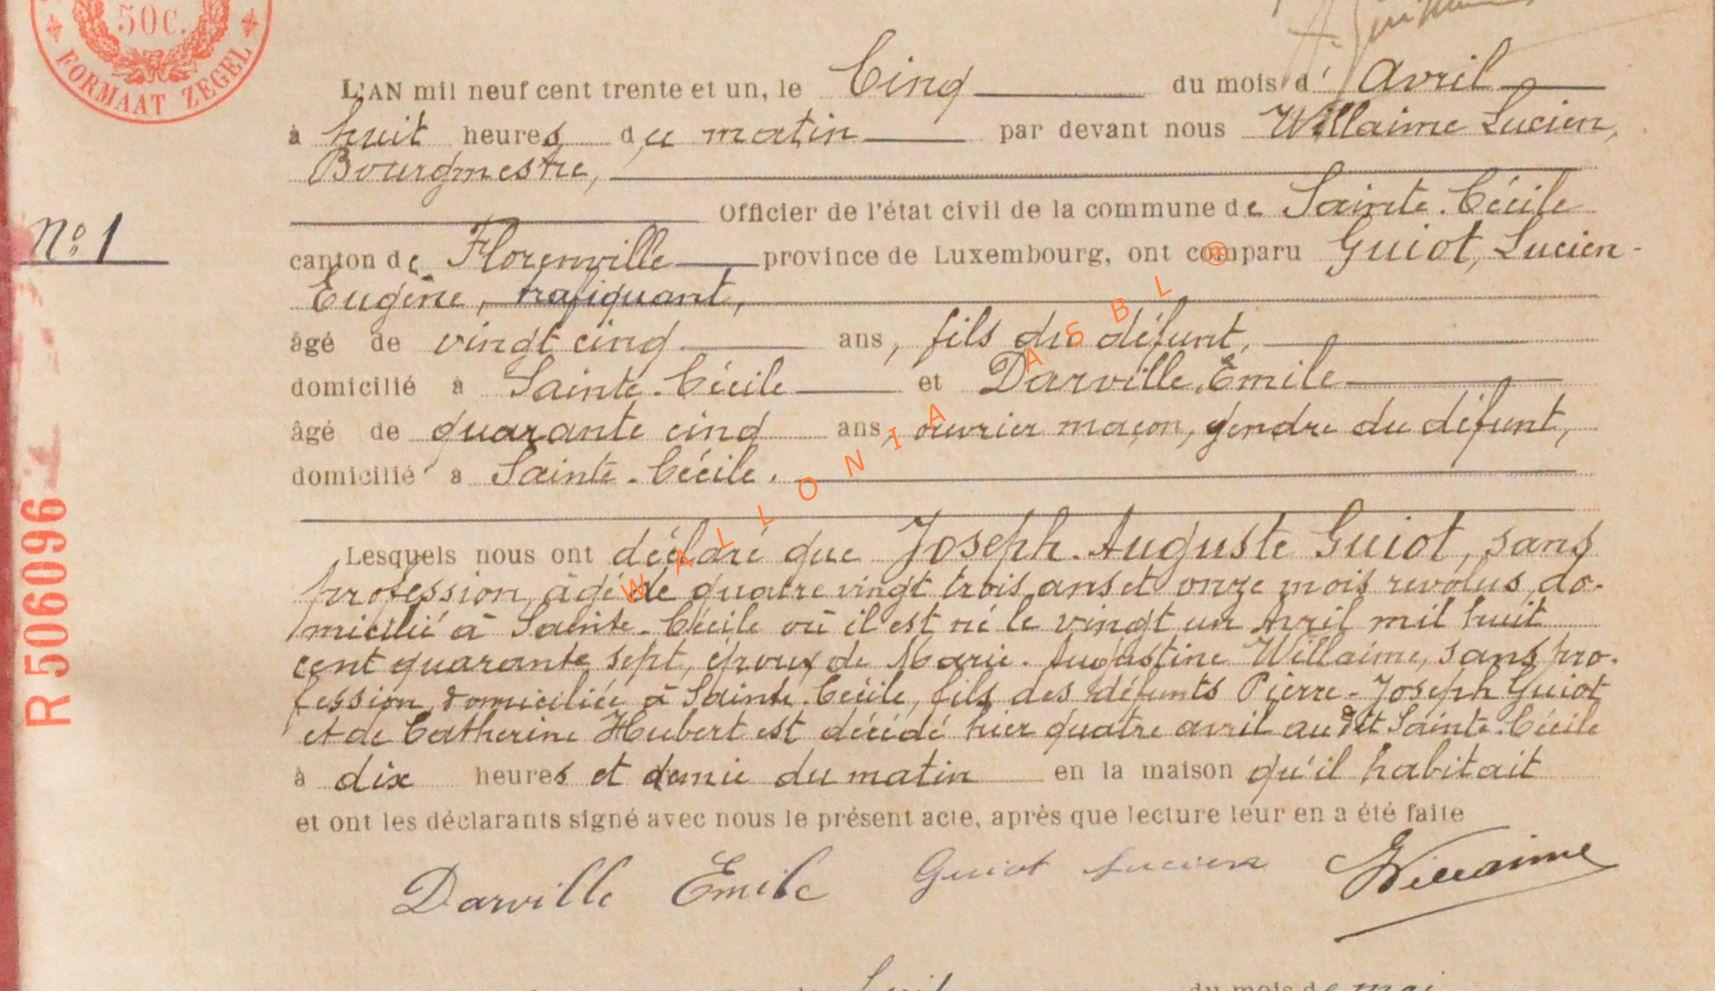 50C.
FORMAAT ZEGEL
L'AN mil neuf cent trente et un, le Cinq du mois d' Avril
à huit heures du matin par devant nous Willaime Lucien,
Bourgmestre,
Officier de l'état civil de la commune de Sainte-Cécile
N° 1
canton de Florenville province de Luxembourg, ont comparu Guiot, Lucien-
Eugène, trafiquant,
âgé de vingt cinq ans, fils du défunt,
domicilié à Sainte-Cécile et Darville, Emile
âgé de quarante cinq ans, ouvrier maçon, gendre du défunt,
domicilié à Sainte-Cécile.
Lesquels nous ont déclaré que Joseph-Auguste Guiot, sans
profession, âgé de quatre vingt trois ans et onze mois révolus, do-
micilié à Sainte-Cécile où il est né le vingt un Avril mil huit
cent quarante sept, époux de Marie-Augustine Willaime, sans pro-
fession, domiciliée à Sainte-Cécile, fils des défunts Pierre-Joseph Guiot
et de Catherine Hubert est décédé hier quatre avril au dit Sainte-Cécile
à dix heures et demie du matin en la maison qu'il habitait
et ont les déclarants signé avec nous le présent acte, après que lecture leur en a été faite
Darville Emile Guiot Lucien Willaime
R 506096
WALLONIA ASBL ®
du mois de mai